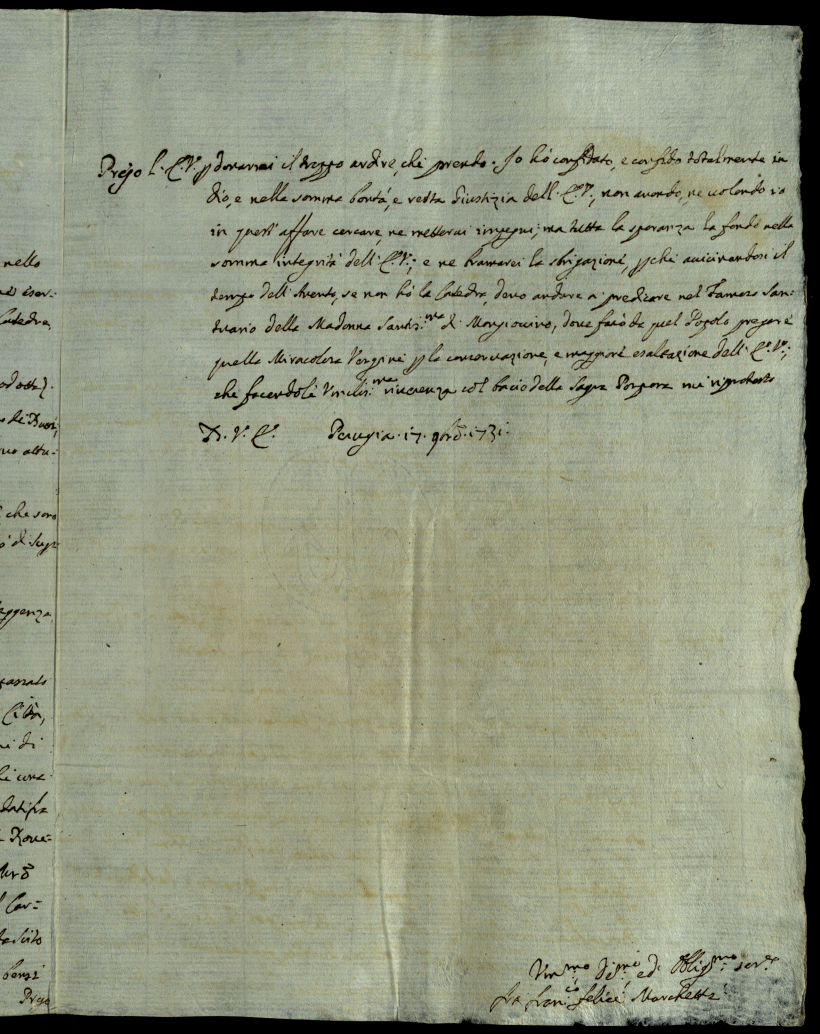 nello
Catedra,
che sono
Città,
ni di
Car=
Prego
Prego l'E.V. p donarmi il troppo ardire, che prendo. Io hó confidato, e confido totalmente in
dio, e nella somma bontá, e retta Giustizia dell'E.V., non avendo, ne volendo io
in quest'affare cercare, ne mettervi impegni, ma tutta la speranza la fondo nella
somma integritá dell'E.V.; e ne bramerei la sbrigazione, pché avicinandosi il
tempo dell'Avento, se non hó la Catedra, devo andare a predicare nel Famoso San=
tuario della Madonna Santis:ma di Mongiovino, dove faró da quel Popolo pregare
quella Miracolosa Vergine p la conservazione, e maggiore esaltazione dell'E.V.;
che facendole Umilis:ma riverenza col bacio della Sagra Porpora mi riprotesto
D. V. E. Perugia. 17. 9bre. 1731.
Um:mo Di:mo ed Oblig:mo ser:e
fra Fran:co felice Marchetti